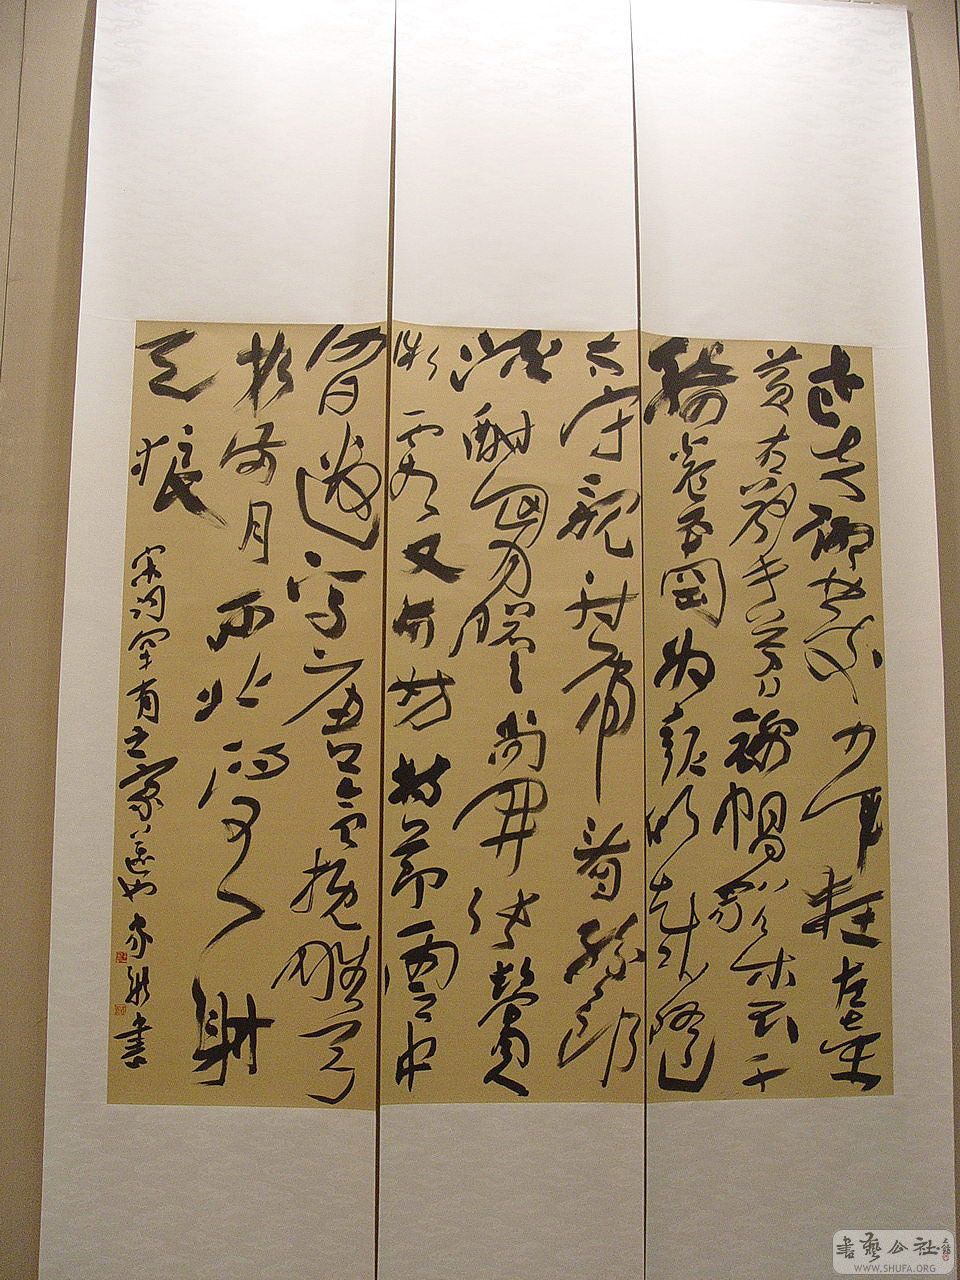 老夫聊發少年狂左牽
黃右擎蒼錦帽貂裘千
騎卷平岡為報傾城隨
太守親射虎看孫郎
酒酣胸膽尚開張鬢
微霜又何妨持節雲中
何日遣馮唐會挽雕弓
如滿月西北望射
天狼
書
書藝公社
WWW.SHUFA.ORG